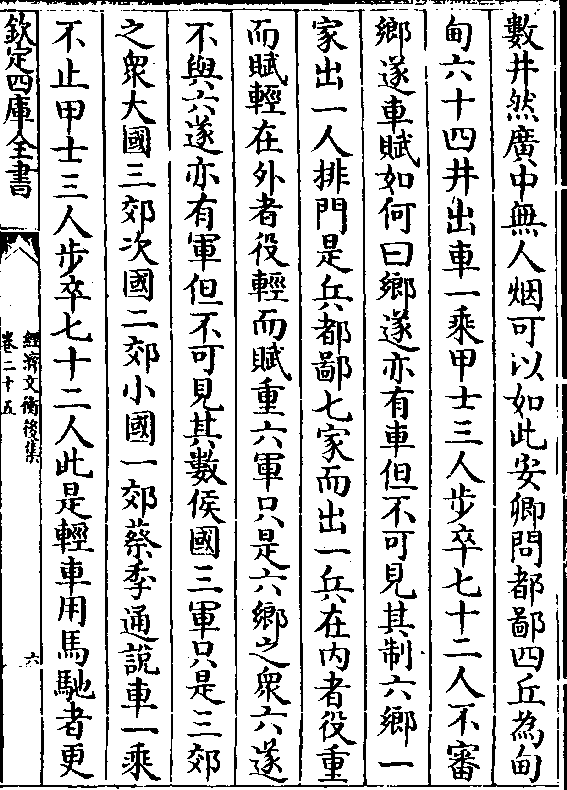 數井然廣中無人烟可以如此安卿問都鄙四丘為甸
甸六十四井出車一乘甲士三人步卒七十二人不審
鄉遂車賦如何曰鄉遂亦有車但不可見其制六鄉一
家出一人排門是兵都鄙七家而出一兵在内者役重
而賦輕在外者役輕而賦重六軍只是六鄉之衆六遂
不與六遂亦有軍但不可見其數侯國三軍只是三郊
之衆大國三郊次國二郊小國一郊蔡季通說車一乘
不止甲士三人步卒七十二人此是輕車用馬馳者更
欽定四庫全書
經濟文衡後集
卷二十五
六